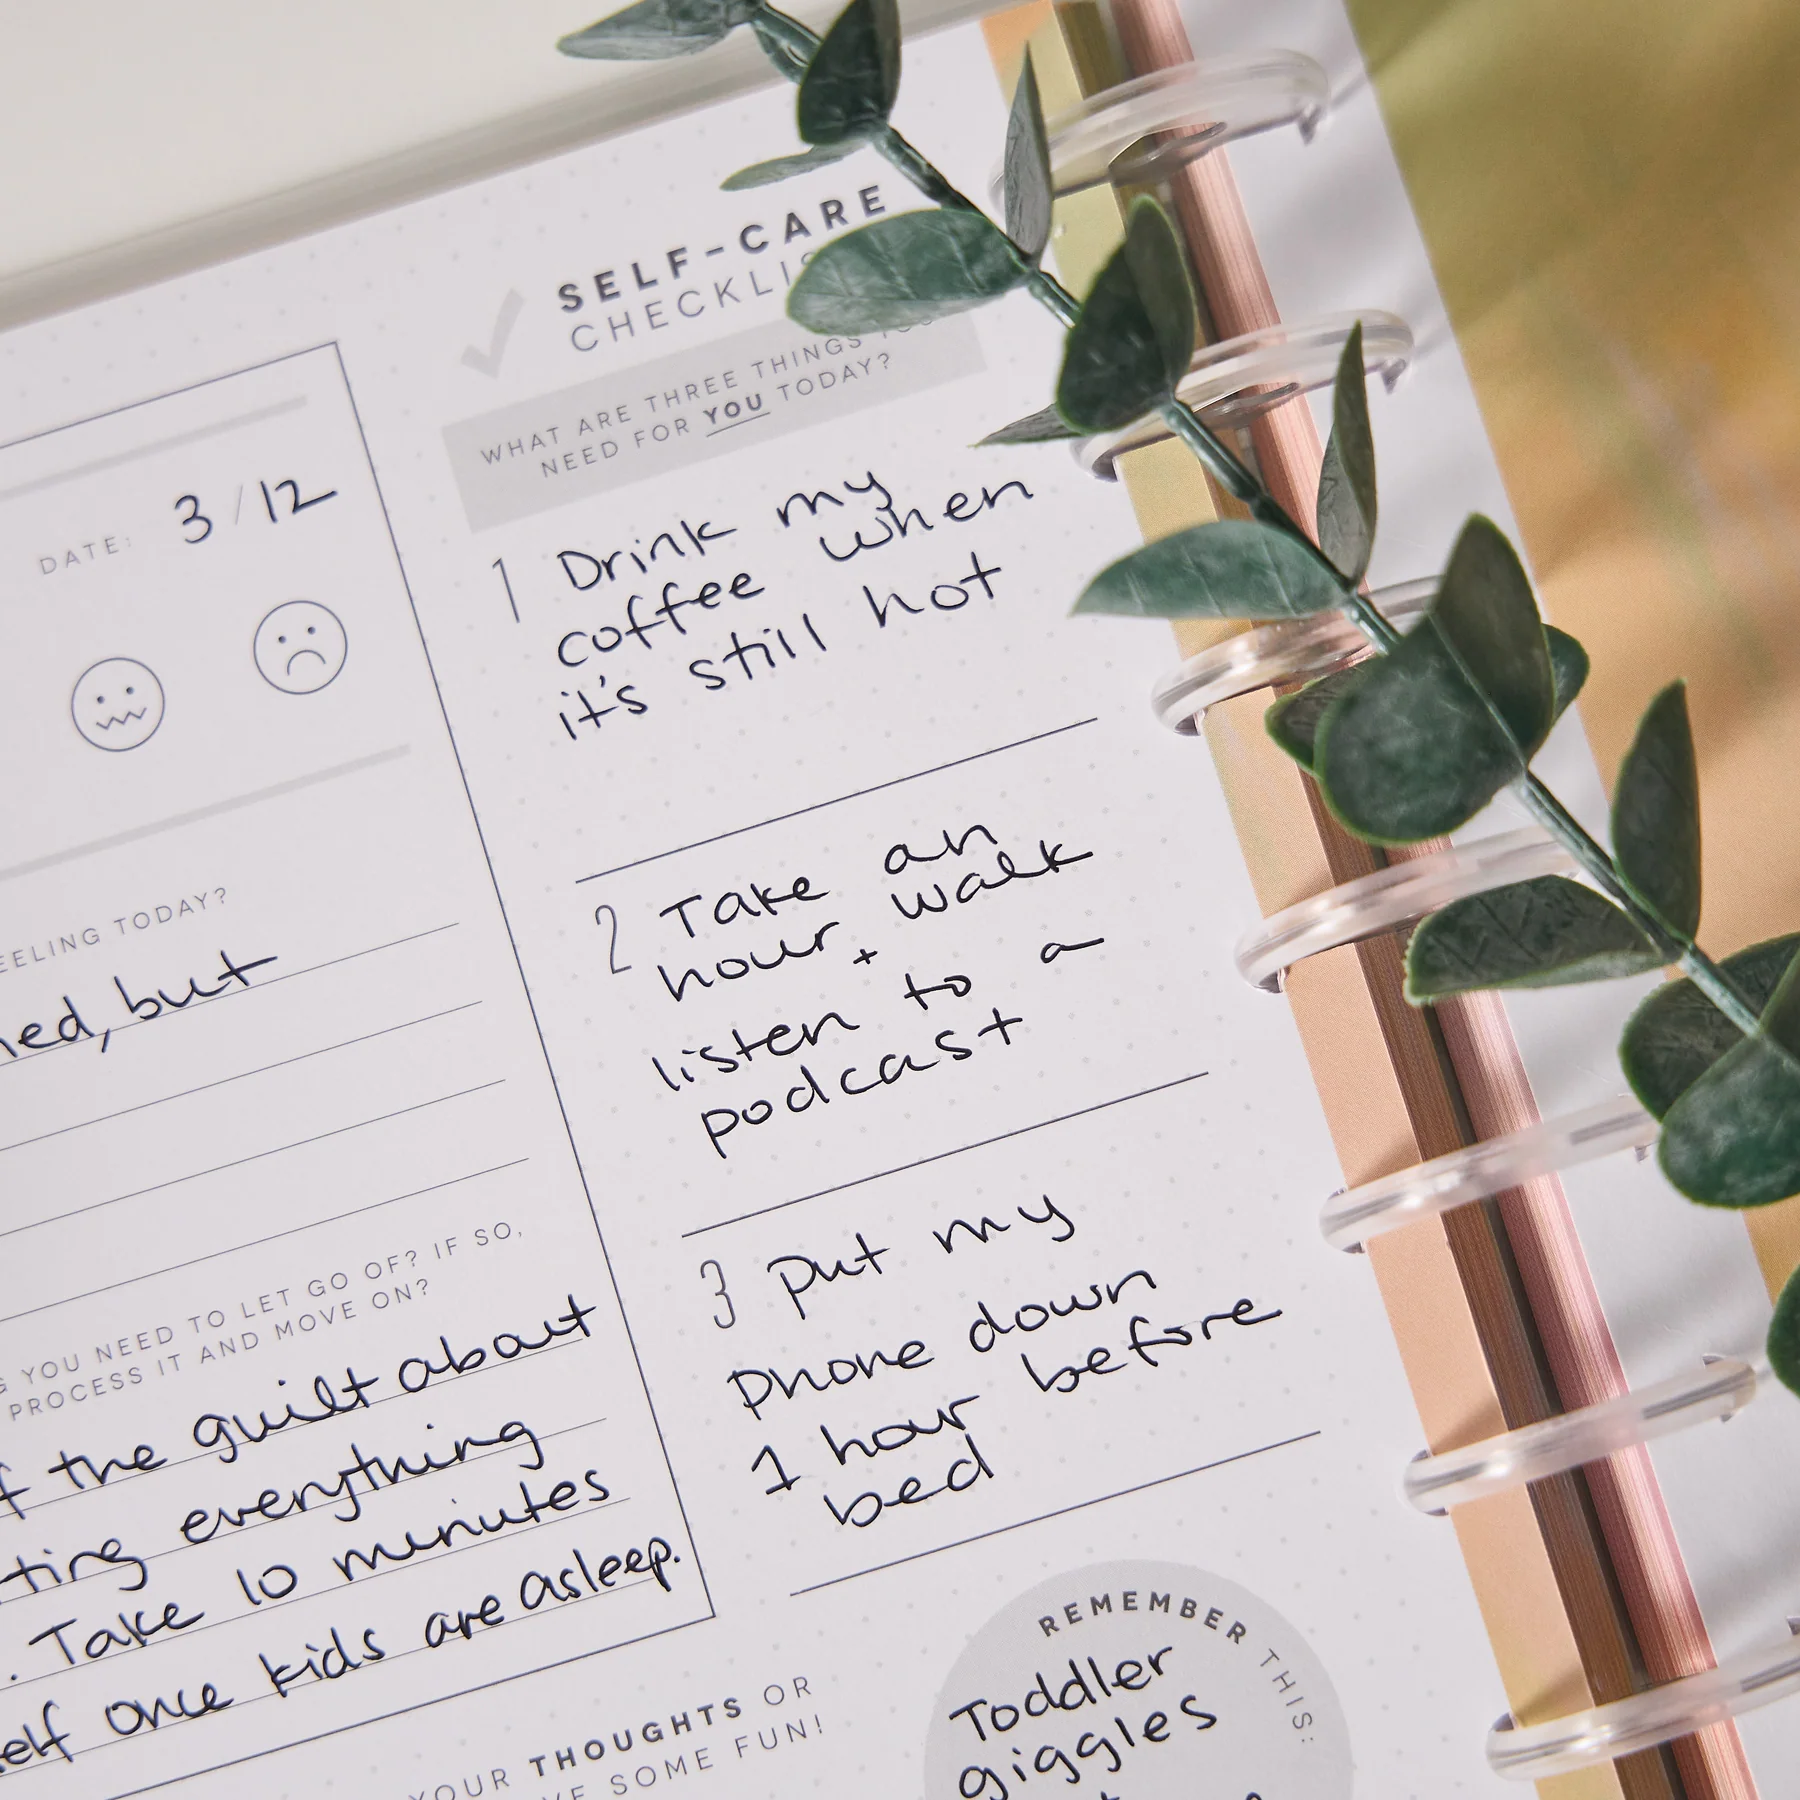 SELF-CARE
WHAT ARE THREE THINGS
NEED FOR YOU TODAY?
DATE: 3/12
1 Drink my
coffee when
it's still hot
2 Take an
hour walk
+
listen to a
podcast
3 Put my
phone down
1 hour before
bed
TODAY?
but
YOU NEED TO LET GO OF? IF SO,
PROCESS IT AND MOVE ON?
the guilt about
everything
. Take 10 minutes
once kids are asleep.
YOUR THOUGHTS OR
SOME FUN!
REMEMBER THIS:
Toddler
giggles